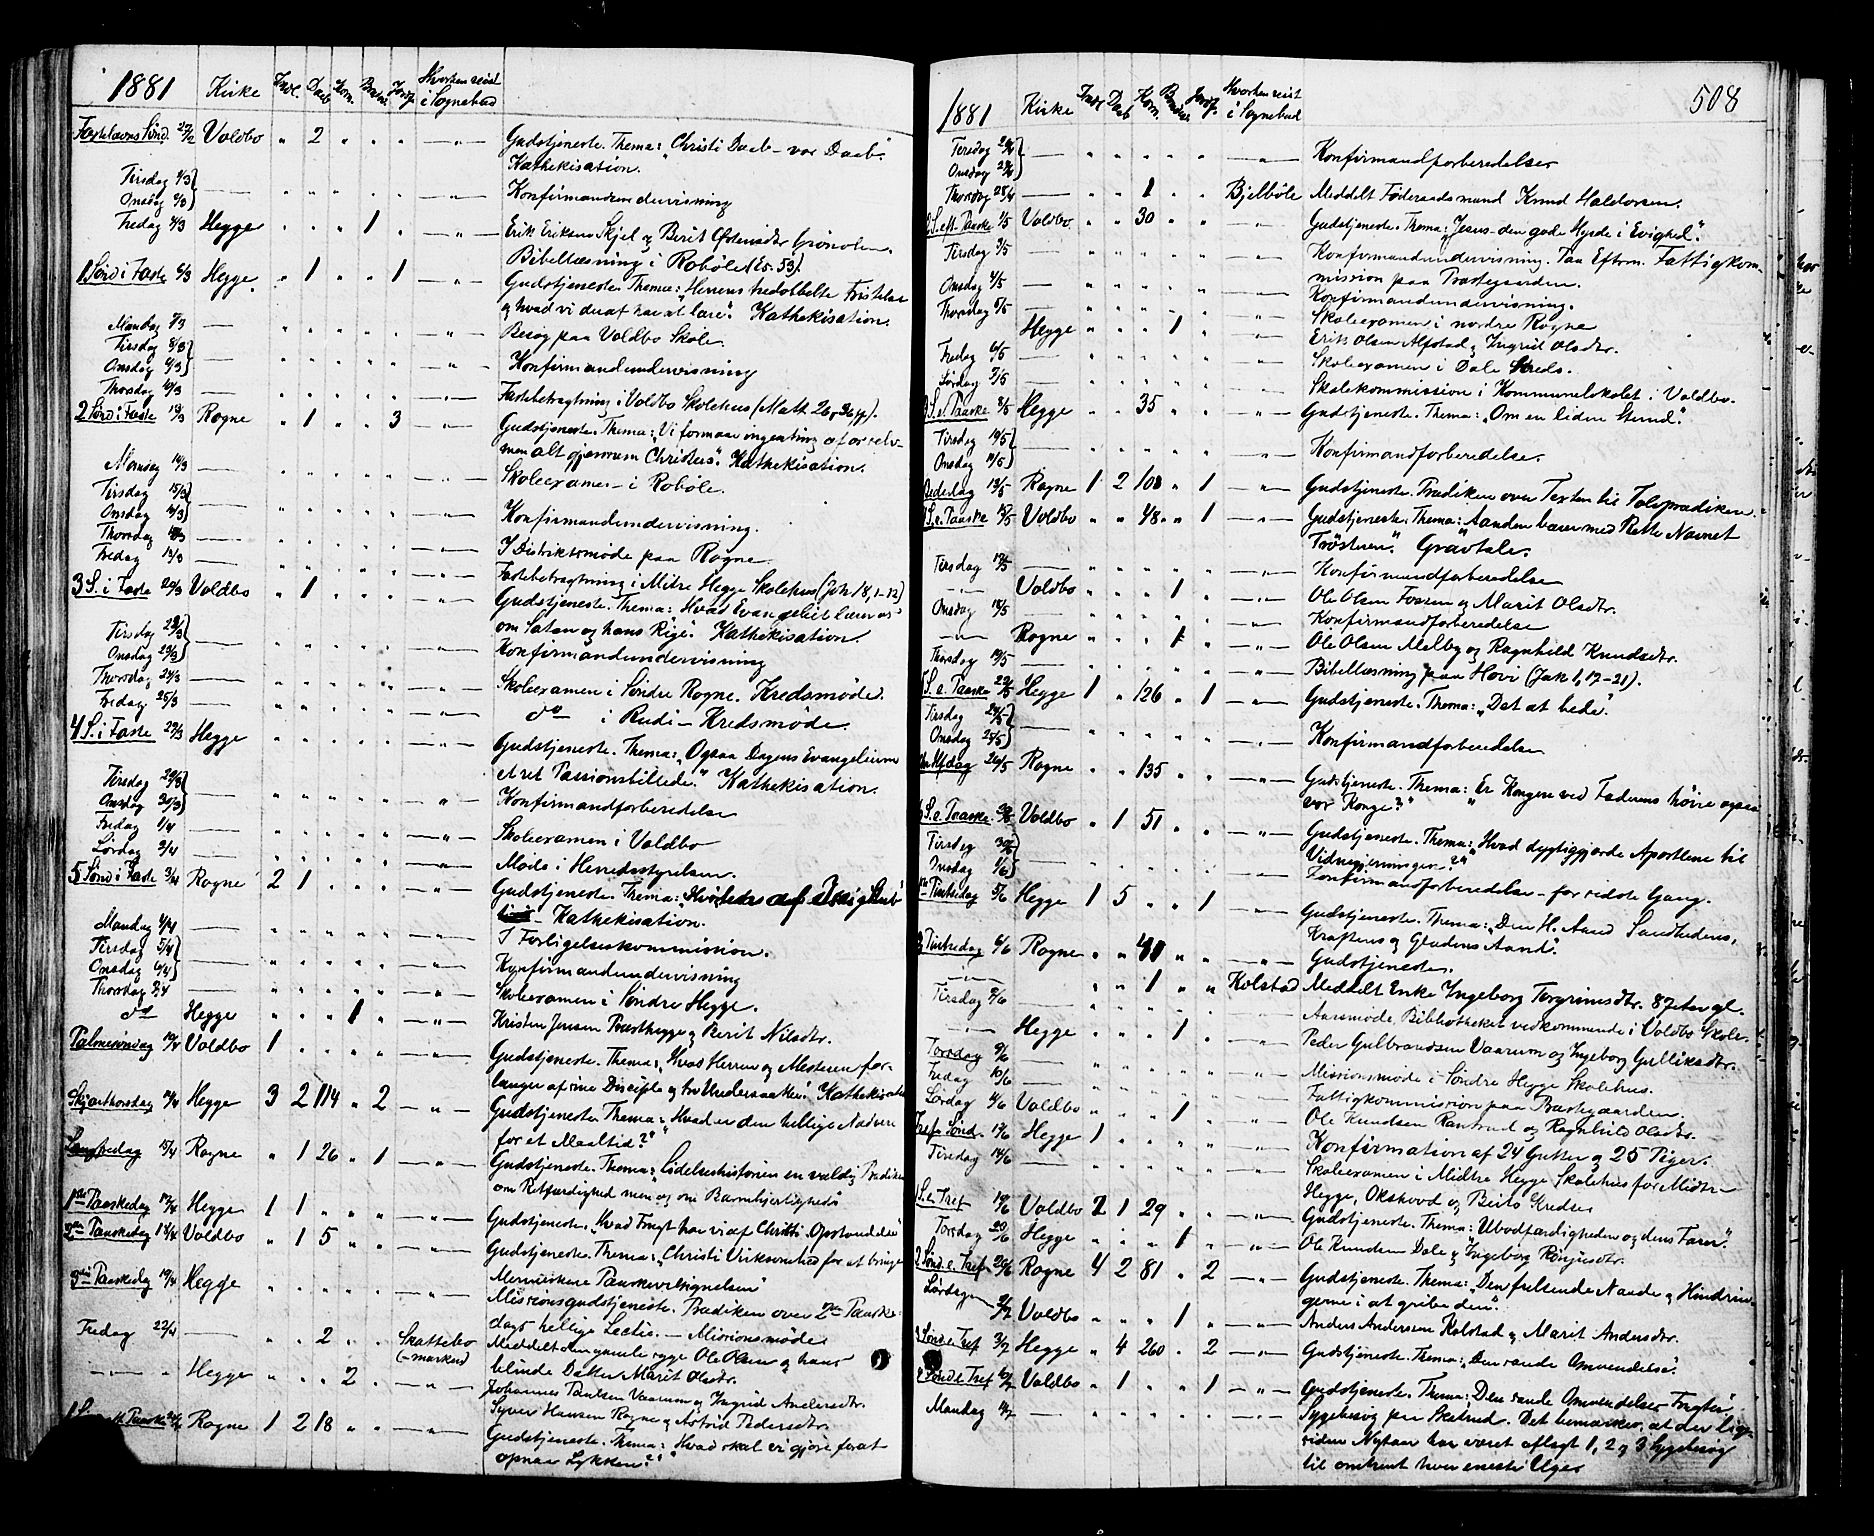 1881 Kirke Indl. Daab Kom. Brud. Jordf. Hvorhen reist i Sognebud
Fastelavns Sønd. 27/2 Voldbo " 2 " " " —"— Gudstjeneste. Thema: "Christi Daab – vor Daab".
Kathekisation.
Tirsdag 1/3
Onsdag 2/3 — Konfirmandundervisning
Fredag 4/3 Hegge " " " 1 " —"— Erik Eriksen Skjel og Berit
Bibellæsning i Robøle (Es. 53).
1 Sønd i Faste 6/3 Hegge " 1 " " 1 —"— Gudstjeneste. Thema: "Herrens tredobbelte Fristelse
og hvad vi deraf har at lære". Kathekisation.
Mandag 7/3 — Besøg paa Voldbo Skole.
Tirsdag 8/3
Onsdag 9/3 — Konfirmandundervisning
Thorsdag 10/3 — Fastebetragtning i Voldbo Skolehus (Math. 26, 36 ff).
2 Sønd i Faste 13/3 Rogne " 1 " " 3 —"— Gudstjeneste. Thema: "Vi formaar ingenting af os selv –
men alt gjennem Christus". Kathekisation.
Mandag 14/3 — Skoleexamen i Robøle.
Tirsdag 15/3
Onsdag 16/3 — Konfirmandundervisning.
Thorsdag — I Distriktsmøde paa Rogne
Fredag — Fastebetragtning i Midtre Hegge Skolehus (Joh. 18, 1–12)
3 S. i Faste 20/3 Voldbo " 1 " " " —"— Gudstjeneste. Thema: "Hvad Evangeliet lærer os
om Satan og hans Rige". Kathekisation.
Tirsdag 22/3
Onsdag 23/3 — Konfirmandundervisning
Thorsdag 24/3 — Skoleexamen i Søndre Rogne. Kredsmøde.
Fredag 25/3 — do i Rudi – Kredsmøde.
4 S. i Faste 27/3 Hegge —"— Gudstjeneste. Thema: "Ogsaa Dagens Evangelium
et ret Passionsbillede". Kathekisation.
Tirsdag 29/3
Onsdag 30/3 — Konfirmandforberedelse
Fredag 1/4 — Skoleexamen i Voldbo
Lørdag 2/4 — Møde i Herredsstyrelsen.
5 Sønd i Faste 3/4 Rogne 2 1 " " " —"— Gudstjeneste. Thema:
Kathekisation.
Mandag 4/4 — I Forligelseskommission.
Tirsdag 5/4
Onsdag 6/4 — Konfirmandundervisning
Thorsdag 7/4 — Skoleexamen i Søndre Hegge.
do Hegge " " " 1 " —"— Kristen Jensen Præsthegge og Berit Nilsdtr.
Palmesøndag 10/4 Voldbo 1 " " " " —"— Gudstjeneste. Thema: "Hvad Herren og Mesteren for-
langer af sine Disciple og troe Undersaatter". Kathekisation
Skjærthorsdag 14/4 Hegge 3 2 114 " 2 —"— Gudstjeneste. Thema: "Hvad er den hellige Nadver
for et Maaltid?"
Langfredag 15/4 Rogne " 1 26 " 1 —"— Gudstjeneste. Thema: "Lidelseshistorien en vældig Prædiken
om Retfærdighed men og om Barmhjertighed"
1ste Paaskedag 17/4 Hegge 1 1 " " " —"— Gudstjeneste. "Hvad Frugt har vi af Christi Opstandelse"
2den Paaskedag 18/4 Voldbo " 1 5 " " —"— Gudstjeneste. Thema: "Christi Virksomhed for at bringe
Menneskene Paaskevelsignelsen"
3die Paaskedag 19/4 Hegge —"— Missionsgudstjeneste. Prædiken over 2den Paaske-
dags hellige Lectie. – Missionsmøde
Fredag 22/4 — " " 2 " " Skattebo (–marken) Meddelt den gamle syge Ole Olsen og hans
blinde Datter Marit Olsdtr.
—"— Hegge " " " 2 " —"— Johannes Paulsen Vaarum og Ingrid Andersdtr.
Syver Hansen Rogne og Astrid Pedersdtr.
1 S. eft. Paaske 24/4 Rogne 1 2 18 " " —"— Gudstjeneste. Thema: "Hvad skal vi gjøre for at
opnaa Lykken?"
508
1881 Kirke Indl Daab Kom. Brudev. Jordf. Hvorhen reist i Sognebud
Tirsdag 26/4
Onsdag 27/4 — Konfirmandforberedelser
Thorsdag 28/4 — " " 1 " " Bjelbøle Meddelt Føderaadsmand Knud Haldorsen.
2 S. eft. Paaske 1/5 Voldbo " " 30 " " —"— Gudstjeneste. Thema: "Jesus – den gode Hyrde i Evighed".
Tirsdag 3/5 — Konfirmandundervisning. Paa Efterm. Fattigkom-
mission paa Præstegaarden.
Onsdag 4/5 — Konfirmandundervisning.
Thorsdag 5/5 — Skoleexamen i nordre Rogne
Hegge " " " 1 " —"— Erik Olsen Alfstad og Ingrid Olsdtr.
Fredag 6/5 — Skoleexamen i Dale Kreds.
Lørdag 7/5 — Skolekommission i Kommunelokalet i Voldbo.
3 S. e. Paaske 8/5 Hegge " " 35 " " —"— Gudstjeneste. Thema: "Om en liden Stund".
Tirsdag 10/5
Onsdag 11/5 — Konfirmandforberedelse.
Bededag 13/5 Rogne 1 2 108 " 1 —"— Gudstjeneste. Prædiken over Texten til Tolvprædiken.
4 S. e. Paaske 15/5 Voldbo " " 48 " 1 —"— Gudstjeneste. Thema: "Aanden bærer med Rette Navnet
Trøsteren". Gravtale.
Tirsdag 17/5 — Konfirmandforberedelse
—"— Voldbo " " " 1 " —"— Ole Olsen Fossen og Marit Olsdtr.
Onsdag 18/5 — Konfirmandforberedelse
—"— Rogne " " " 1 " —"— Ole Olsen Melby og Ragnhild Knudsdtr.
Thorsdag 19/5 — Bibellæsning paa Hovi (Jak 1, 17–21).
5 S. e. Paaske 22/5 Hegge 1 " 126 " 1 —"— Gudstjeneste. Thema: "Det at bede".
Tirsdag 24/5
Onsdag 25/5 — Konfirmandforberedelse
Chr. Hfdag 26/5 Rogne " " 135 " " —"— Gudstjeneste. Thema: "Er Kongen ved Faderens høire ogsaa
vor Konge?"
6 S. e. Paaske 29/5 Voldbo " 1 51 " " —"— Gudstjeneste. Thema: "Hvad dygtiggjorde Apostlene til
Vidnegjerningen?"
Tirsdag
Onsdag 1/6 — Konfirmandforberedelse – for sidste Gang.
1ste Pintsedag 5/6 Hegge 1 5 " " 1 —"— Gudstjeneste. Thema: "Den H. Aand Sandhedens,
Kraftens og Glædens Aand".
2 Pintsedag 6/6 Rogne " " " " —"— Gudstjeneste.
—"— " " 1 " " Kolstad Meddelt Enke Ingeborg Torgrimsdtr. 87 Aar gl.
Tirsdag 7/6 — Aarsmøde, Bibliotheket vedkommende i Voldbo Skole.
—"— Hegge " " " 1 " —"— Peder Gulbrandsen Vaarum og Ingeborg Gulliksdtr.
Torsdag 9/6 — Missionsmøde i Søndre Hegge Skolehus.
Fredag 10/6 — Fattigkommission paa Præstegaarden.
Lørdag 11/6 Voldbo " " " 1 " —"— Ole Knudsen Ranstad og Ragnhild Olsdtr.
Tref. Sønd. 12/6 Hegge 1 " " " " —"— Konfirmation af 24 Gutter og 25 Piger.
Tirsdag 14/6 — Skoleexamen i Midtre Hegge Skolehus for Midtre
Hegge, Okshovd og Beito Kredse
1 S. e. Tref 19/6 Voldbo 1 29 " " —"— Gudstjeneste. Thema: "Ubodfærdigheden og dens Farer".
Torsdag Hegge " " " 1 " —"— Ole Knudsen Dale og Ingeborg
2 Sønd. e. Tref 26/6 Rogne 4 2 81 " 2 —"— Gudstjeneste. Thema: "Den frelsende Naade og Hindrin-
gerne i at gribe den".
Lørdagen 2/7 Voldbo " " " 1 " —"— Anders Andersen Kolstad og Marit Andersdtr.
3 Sønd e. Tref 3/7 Hegge " 4 260 " 2 —"— Gudstjeneste. Thema: "Den sande Omvendelse".
4 Sønd e. Tref 10/7 Voldbo " 1 " " 1 —"— Gudstjeneste. Thema: "Den sande Omvendelses Frugter".
Mandag 11/7 — Sygebesøg paa Skatrud. Det bemærkes, at der lige
siden Nytaar har været aflagt 1, 2 og 3 Sygebesøg
til omtrent hver eneste Uge